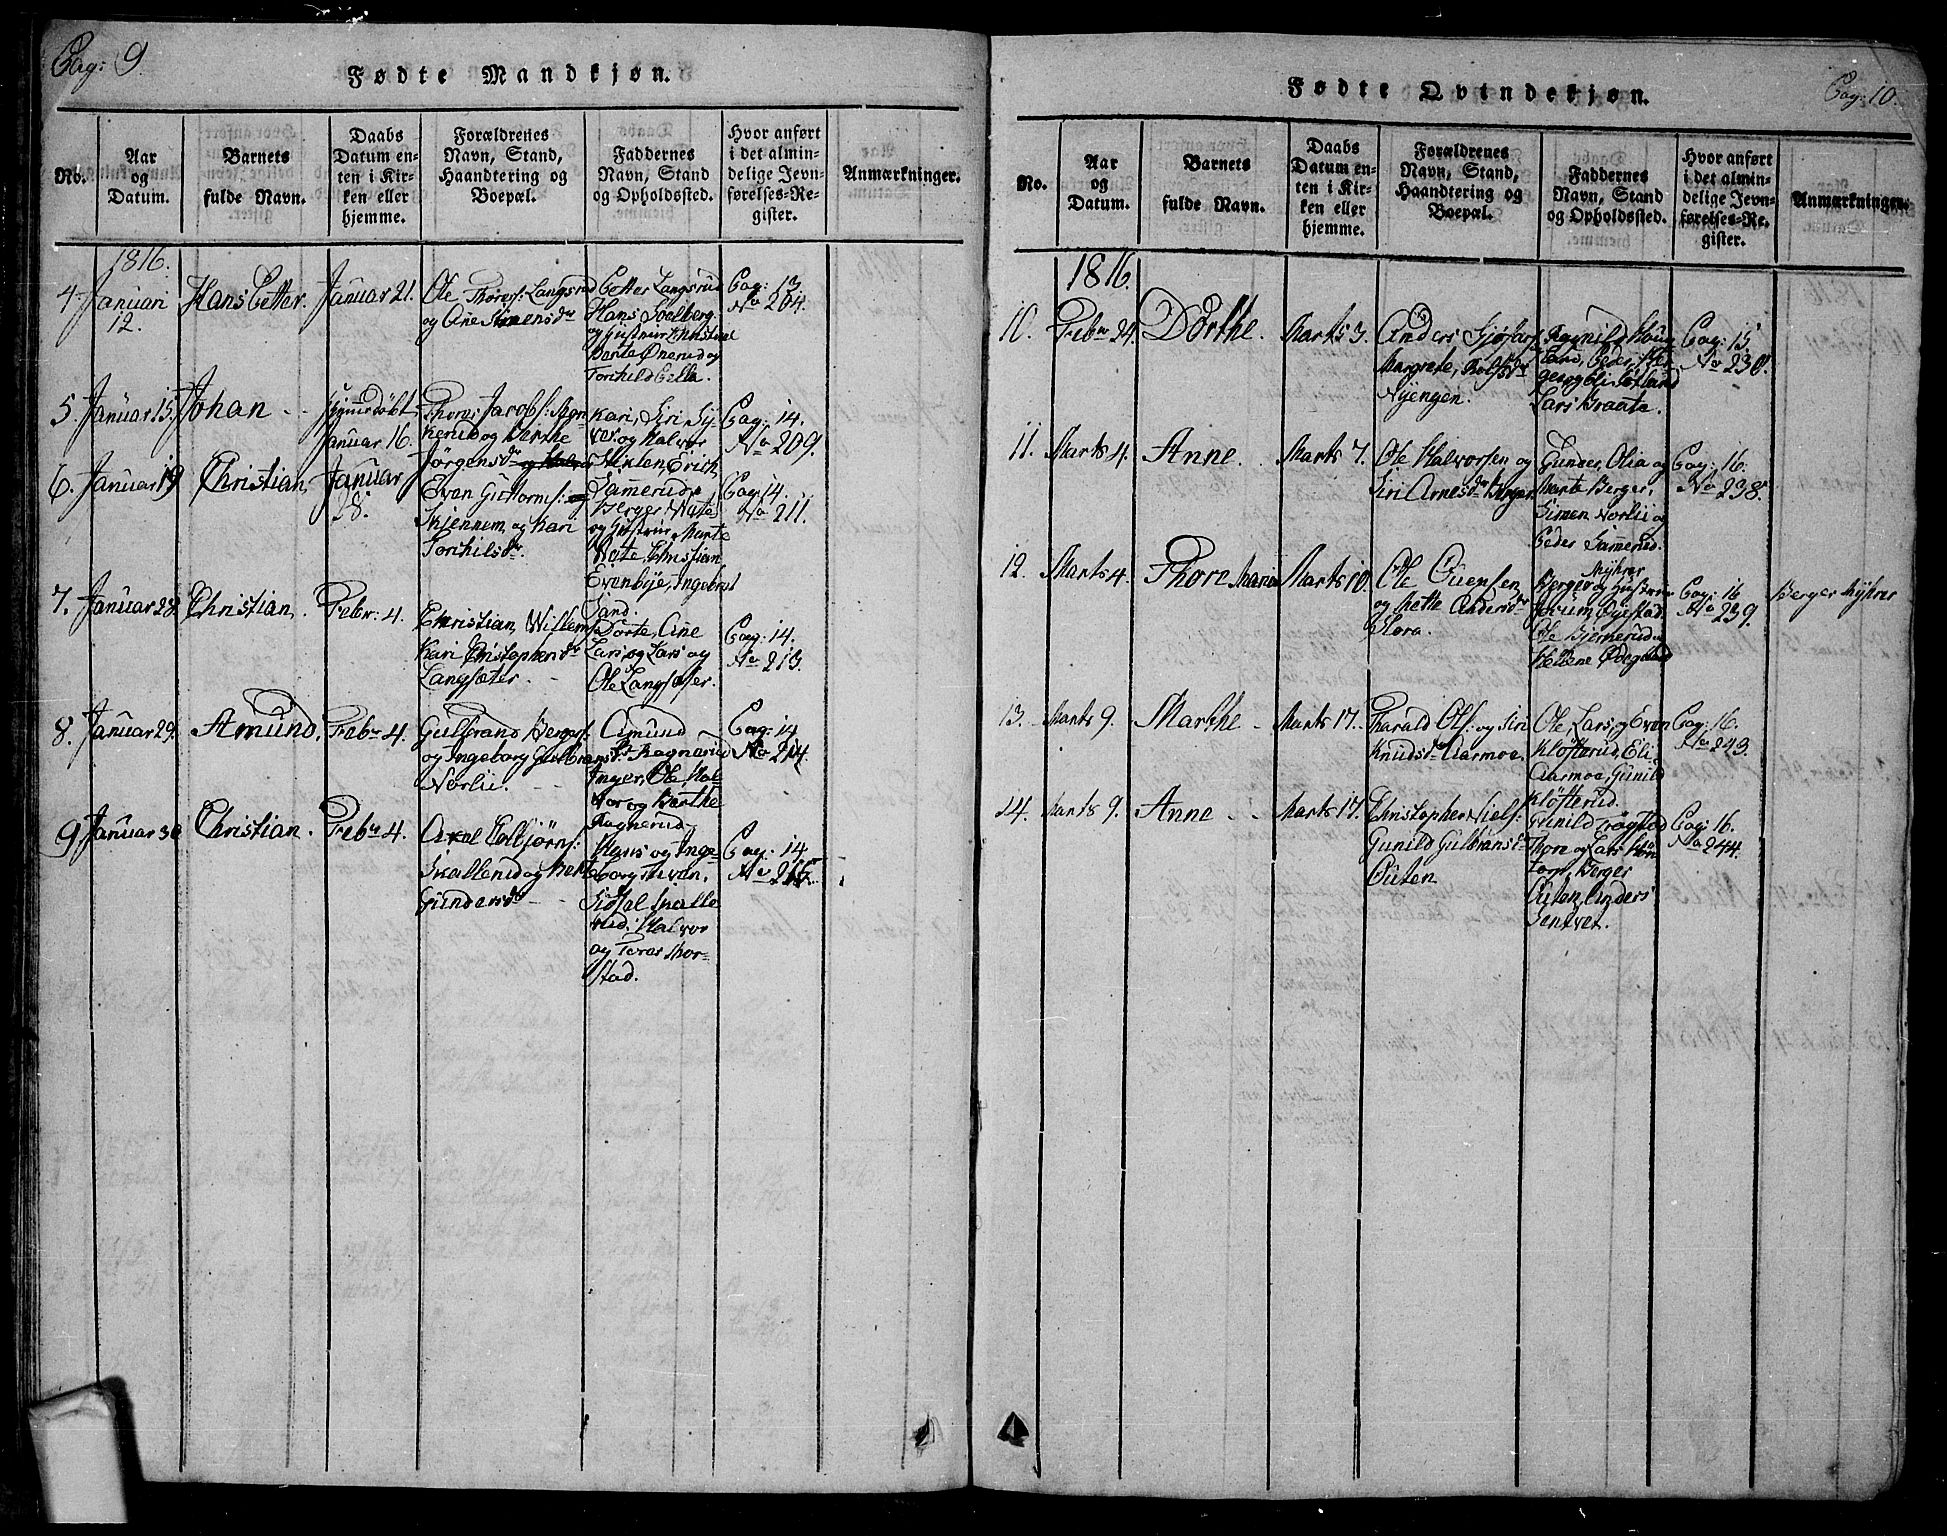 Pag: 9.
Fødte Mandkjøn.
No.
Aar
og
Datum.
Barnets
fulde Navn.
Daabs
Datum en-
ten i Kir-
ken eller
hjemme.
Forældrenes
Navn, Stand,
Haandtering og
Boepæl.
Faddernes
Navn, Stand
og Opholdssted.
Hvor anført
i det almin-
delige Jevn-
førelses-Re-
gister.
Anmærkninger.
1816.
4. Januari
12.
Hans Petter.
Januar 21.
Ole Thores: Langsrud
og Ane Simensdr
Petter Langsrud
Hans Soelberg
Bente Ønerud og
Torchild Pella.
Pag: 13.
No 204.
5. Januar 15.
Johan
hjemdøbt
Januar 16.
Thores Jacobs:
kerud og Birthe
Jørgensdr
Kari, Siri
og Halvor
Pag: 14.
No 209.
6. Januar 19
Christian,
Januar
28.
Even Guttorms:
Skjennem og Kari
Torchilsdr
Erich,
Berger Nate
og Hustrue, Marte
Nate, Christian
Evenbye, Ingebret
Sand.
Pag: 14.
No 211.
7. Januar 28.
Christian,
Febr: 4.
Christian Willems
Kari Christophersdr
Langsæter.
Dorte, Ane
Lars og Lars og
Ole Langsæter.
Pag: 14.
No 213.
8. Januar 29.
Amund,
Febr 4.
Gulbrand Bergers:
og Ingeborg Gulbransdr
Norlie.
Amund
Ragnerud
Inger, Ole Hal
vor og Berthe
Ragnerud
Pag: 14
No 214.
9. Januar 30
Christian.
Febr 4.
Axel Colbjørns:
Skallerud og
Gundersdr
Hans og Inge-
borg
Sidsel Skalle
rud, Halvor
og Tores Thor-
stad.
Pag: 14.
No 215.
Pag: 10.
Fødte Qvindekjøn.
No.
Aar
og
Datum.
Barnets
fulde Navn.
Daabs
Datum en-
ten i Kir-
ken eller
hjemme.
Forældrenes
Navn, Stand,
Haandtering og
Boepæl.
Faddernes
Navn, Stand
og Opholdssted.
Hvor anført
i det almin-
delige Jevn-
førelses-Re-
gister.
Anmærkninger.
1816.
10. Febr 24.
Dorthe.
Marts 3.
Anders
Margrete, Rolfsdr
Nyengen.
Ragnild Houg
Lars Braate.
Pag: 15
No 230.
11. Marts 4.
Anne.
Marts 7.
Ole Halvorsen og
Siri Arnesdr Berger
Gunder, Olia og
Marte Berger,
Simen Norlii og
Peder Sämerud.
Pag: 16.
No 238.
12. Marts 4.
Thore Maria
Marts 10.
Ole Ouensen
og Mette Andersdr
Flora.
Myhrer
Berger og Hustrue
Ole Bjerkerud
Hellene Ødegaard
Pag: 16
No 239.
Berger Myhrer
13. Marts 9.
Marthe
Marts 17.
Harald Ols: og Siri
Knudsdr Aarmoe.
Ole, Lars og Even
Kløfterud, Eli
Aarmoe, Gunild
Kløfterud.
Pag: 16.
No 243.
14. Marts 9.
Anne
Marts 17.
Christopher Niels:
Gunild Gulbransdr
Outen
Gunild Frøgstad
Thore og Lars
torp, Berger
Outen, Anders
Sentvet.
Pag: 16.
No 244.